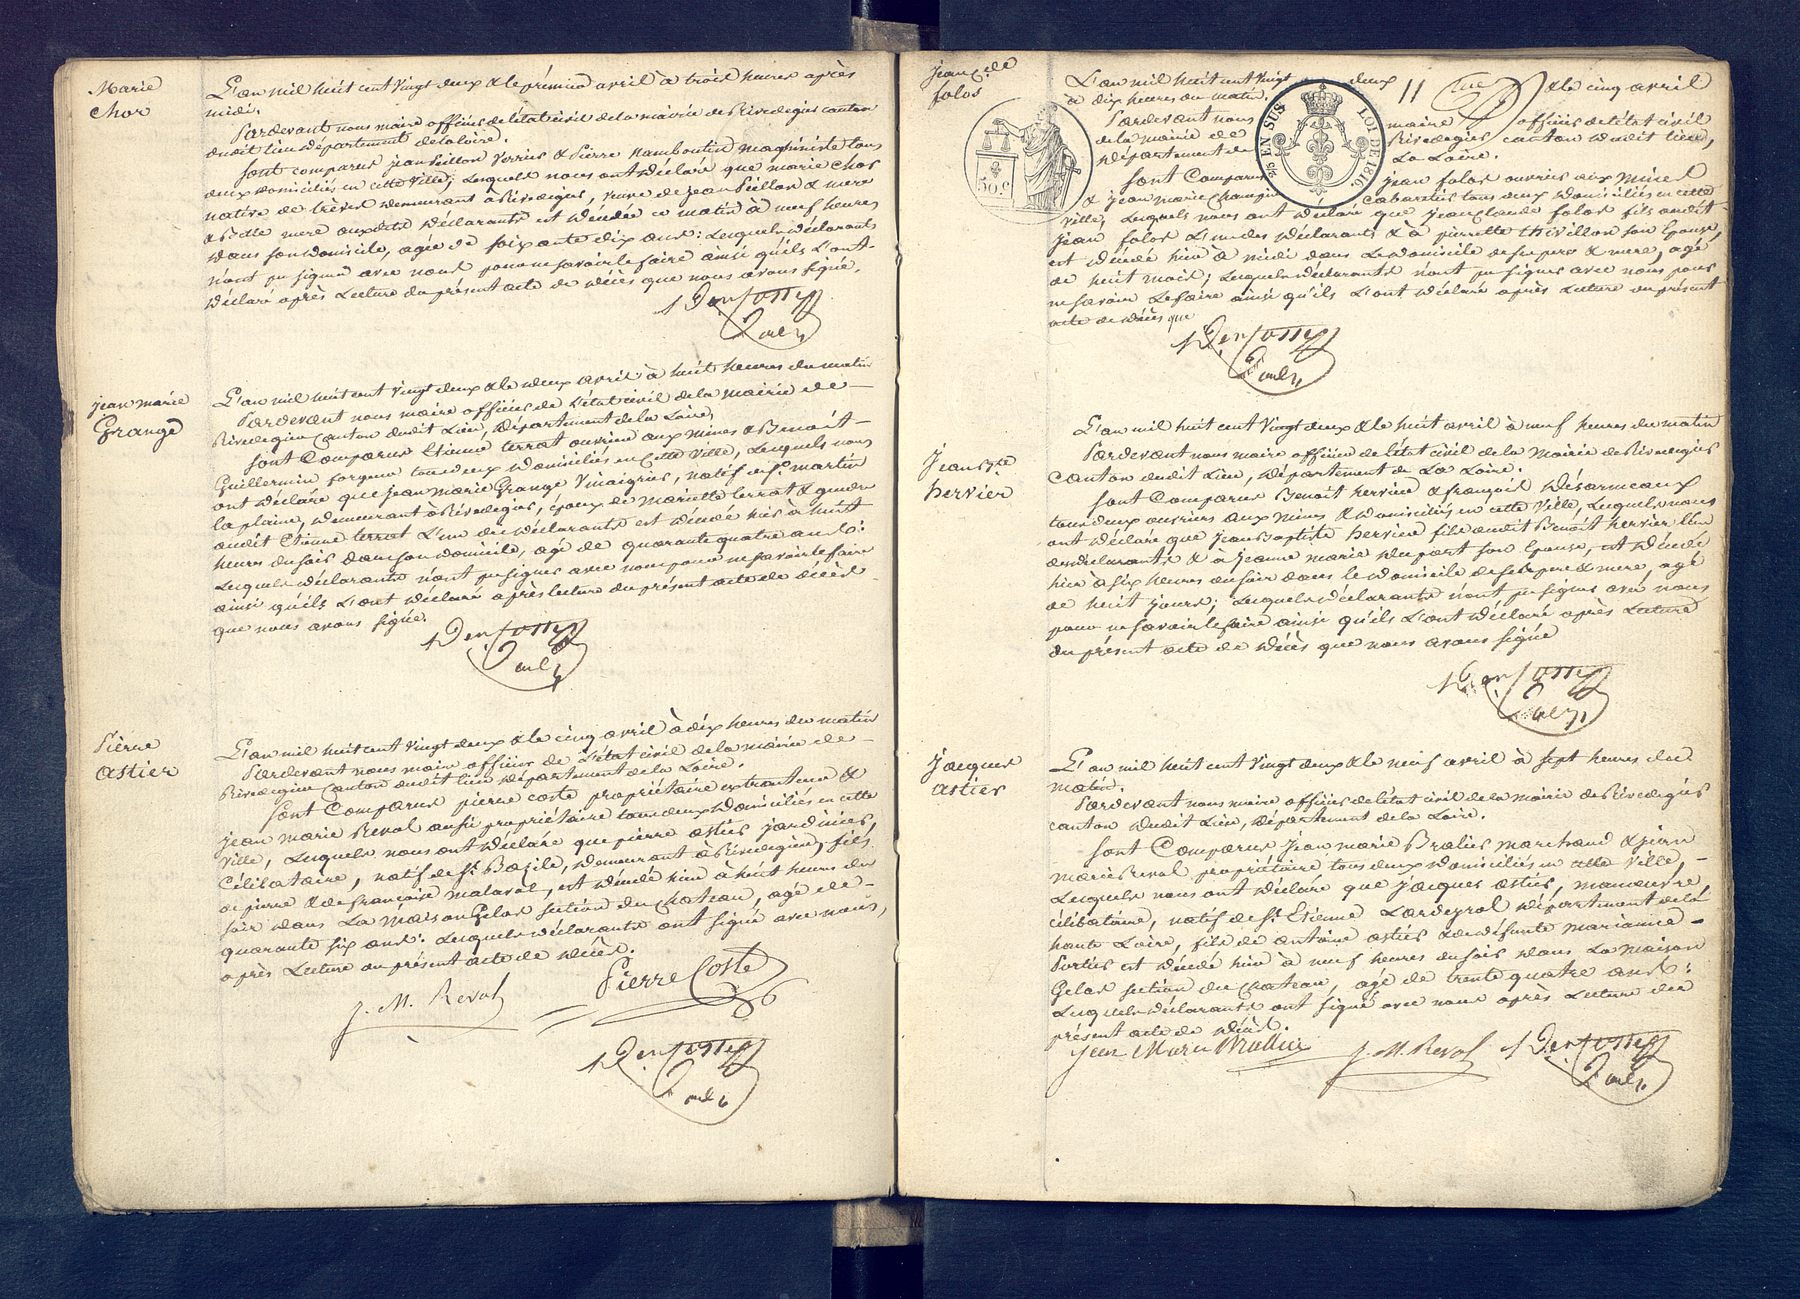 Marie
Chor
L'an mil huit cent vingt deux & le premier avril à trois heures après
midi.
Pardevant nous maire officier de l'état civil de la mairie de Rivedegier canton
dudit lieu département de la Loire.
Sont comparus jean Peillon Verrier & Pierre Rambontin Machiniste tous
deux domiciliés en cette Ville, Lesquels nous ont déclaré que marie Chor
native de trèves demeurant à Rivedegier, veuve de jean Peillon & mere
& Belle mere aux dits déclarants est décédée ce matin à neuf heures
dans son domicile, agée de soixante dix ans: Lesquels déclarants
n'ont pu signer avec nous pour ne savoir le faire ainsi qu'ils L'ont
déclaré après Lecture du présent acte de décès que nous avons signé.
jean marie
Grange
L'an mil huit cent vingt deux & le deux avril à huit heures du matin
Pardevant nous maire officier de L'état civil de la mairie de
Rivedegier Canton dudit Lieu, département de la Loire,
Sont Comparus Etienne terrat ouvrier aux mines & Benoît
Guillermin forgeur tous deux domiciliés en Cette Ville, Lesquels nous
ont déclaré que jean marie Grange Vinaigrier, natif de St. martin
la plaine, demeurant à Rivedegier, époux de Mariette terrat & gendre
audit Etienne terrat L'un des déclarants est décédé hier à huit
heures du soir dans son domicile, agé de quarante quatre ans:
Lesquels déclarants n'ont pu signer avec nous pour ne savoir le faire
ainsi qu'ils L'ont déclaré après lecture du présent acte de décès
que nous avons signé.
Pierre
Astier
L'an mil huit cent vingt deux & le cinq avril à dix heures du matin
Pardevant nous maire officier de L'état civil de la mairie de
Rivedegier Canton dudit lieu département de la Loire.
Sont Comparus pierre coste propriétaire &
jean marie Reval aussi propriétaire tous deux domiciliés en cette
Ville, Lesquels nous ont déclaré que pierre astier jardinier,
Célibataire, natif de St. Bazile, demeurant à Rivedegier, fils
de pierre & de françoise malaval, est décédé hier à huit heures du
soir dans La Maison Gelas section du Chateau, agé de
quarante six ans: Lesquels déclarants ont signé avec nous,
après Lecture du présent acte de décès.
J. M. Reval
Pierre Coste
jean Cde
folos
50 c
25c EN SUS
LOI DE 1816
11
L'an mil huit cent vingt deux & le cinq avril
à dix heures du matin.
Pardevant nous maire officier de l'état civil
de la mairie de Rivedegier canton dudit lieu,
département de La Loire.
Sont Comparus jean folos ouvrier aux Mines
& jean marie Cabaretier tous deux domiciliés en cette
ville, Lesquels nous ont déclaré que jean Claude folos fils audit
jean folos L'un des déclarants & à pierrette thivillon son Epouse,
est décédé hier à midi dans Le domicile de ses pere & mere, agé
de huit mois; Lesquels déclarants n'ont pu signer avec nous pour
ne savoir Le faire ainsi qu'ils L'ont déclaré après Lecture du présent
acte de décès que
Jean Bte
hervier
L'an mil huit cent vingt deux & le huit avril à neuf heures du matin
Pardevant nous maire officier de l'état civil de la Mairie de Rivedegier
Canton dudit Lieu, département de La Loire.
Sont Comparus Benoit hervier & françois désarmeaux
tous deux ouvriers aux mines & domiciliés en cette Ville, Lesquels nous
ont déclaré que Jean Baptiste hervier fils audit Benoît hervier L'un
des déclarants & à jeanne marie dupont son Epouse, est décédé
hier à six heures du soir dans le domicile de ses pere & mere, agé
de huit jours; Lesquels déclarants n'ont pu signer avec nous
pour ne savoir le faire ainsi qu'ils L'ont déclaré après Lecture
du présent acte de décès que nous avons signé
Jacques
astier
L'an mil huit cent vingt deux & le neuf avril à sept heures du
matin.
Pardevant nous maire officier de l'état civil de la Mairie de Rivedegier
canton dudit Lieu, département de la Loire.
Sont Comparus jean marie Bralier marchand & jean
marie Reval propriétaire tous deux domiciliés en cette Ville,
Lesquels nous ont déclaré que jacques astier, manœuvre,
célibataire, natif de St. Etienne Lardeyrol département de la
haute Loire, fils de antoine astier & de défunte marianne
Portier est décédé hier à neuf heures du soir dans La Maison
Gelas section du Chateau, agé de trente quatre ans:
Lesquels déclarants ont signé avec nous après Lecture du
présent acte de décès.
Jean Marie Brallier
J. M. Reval